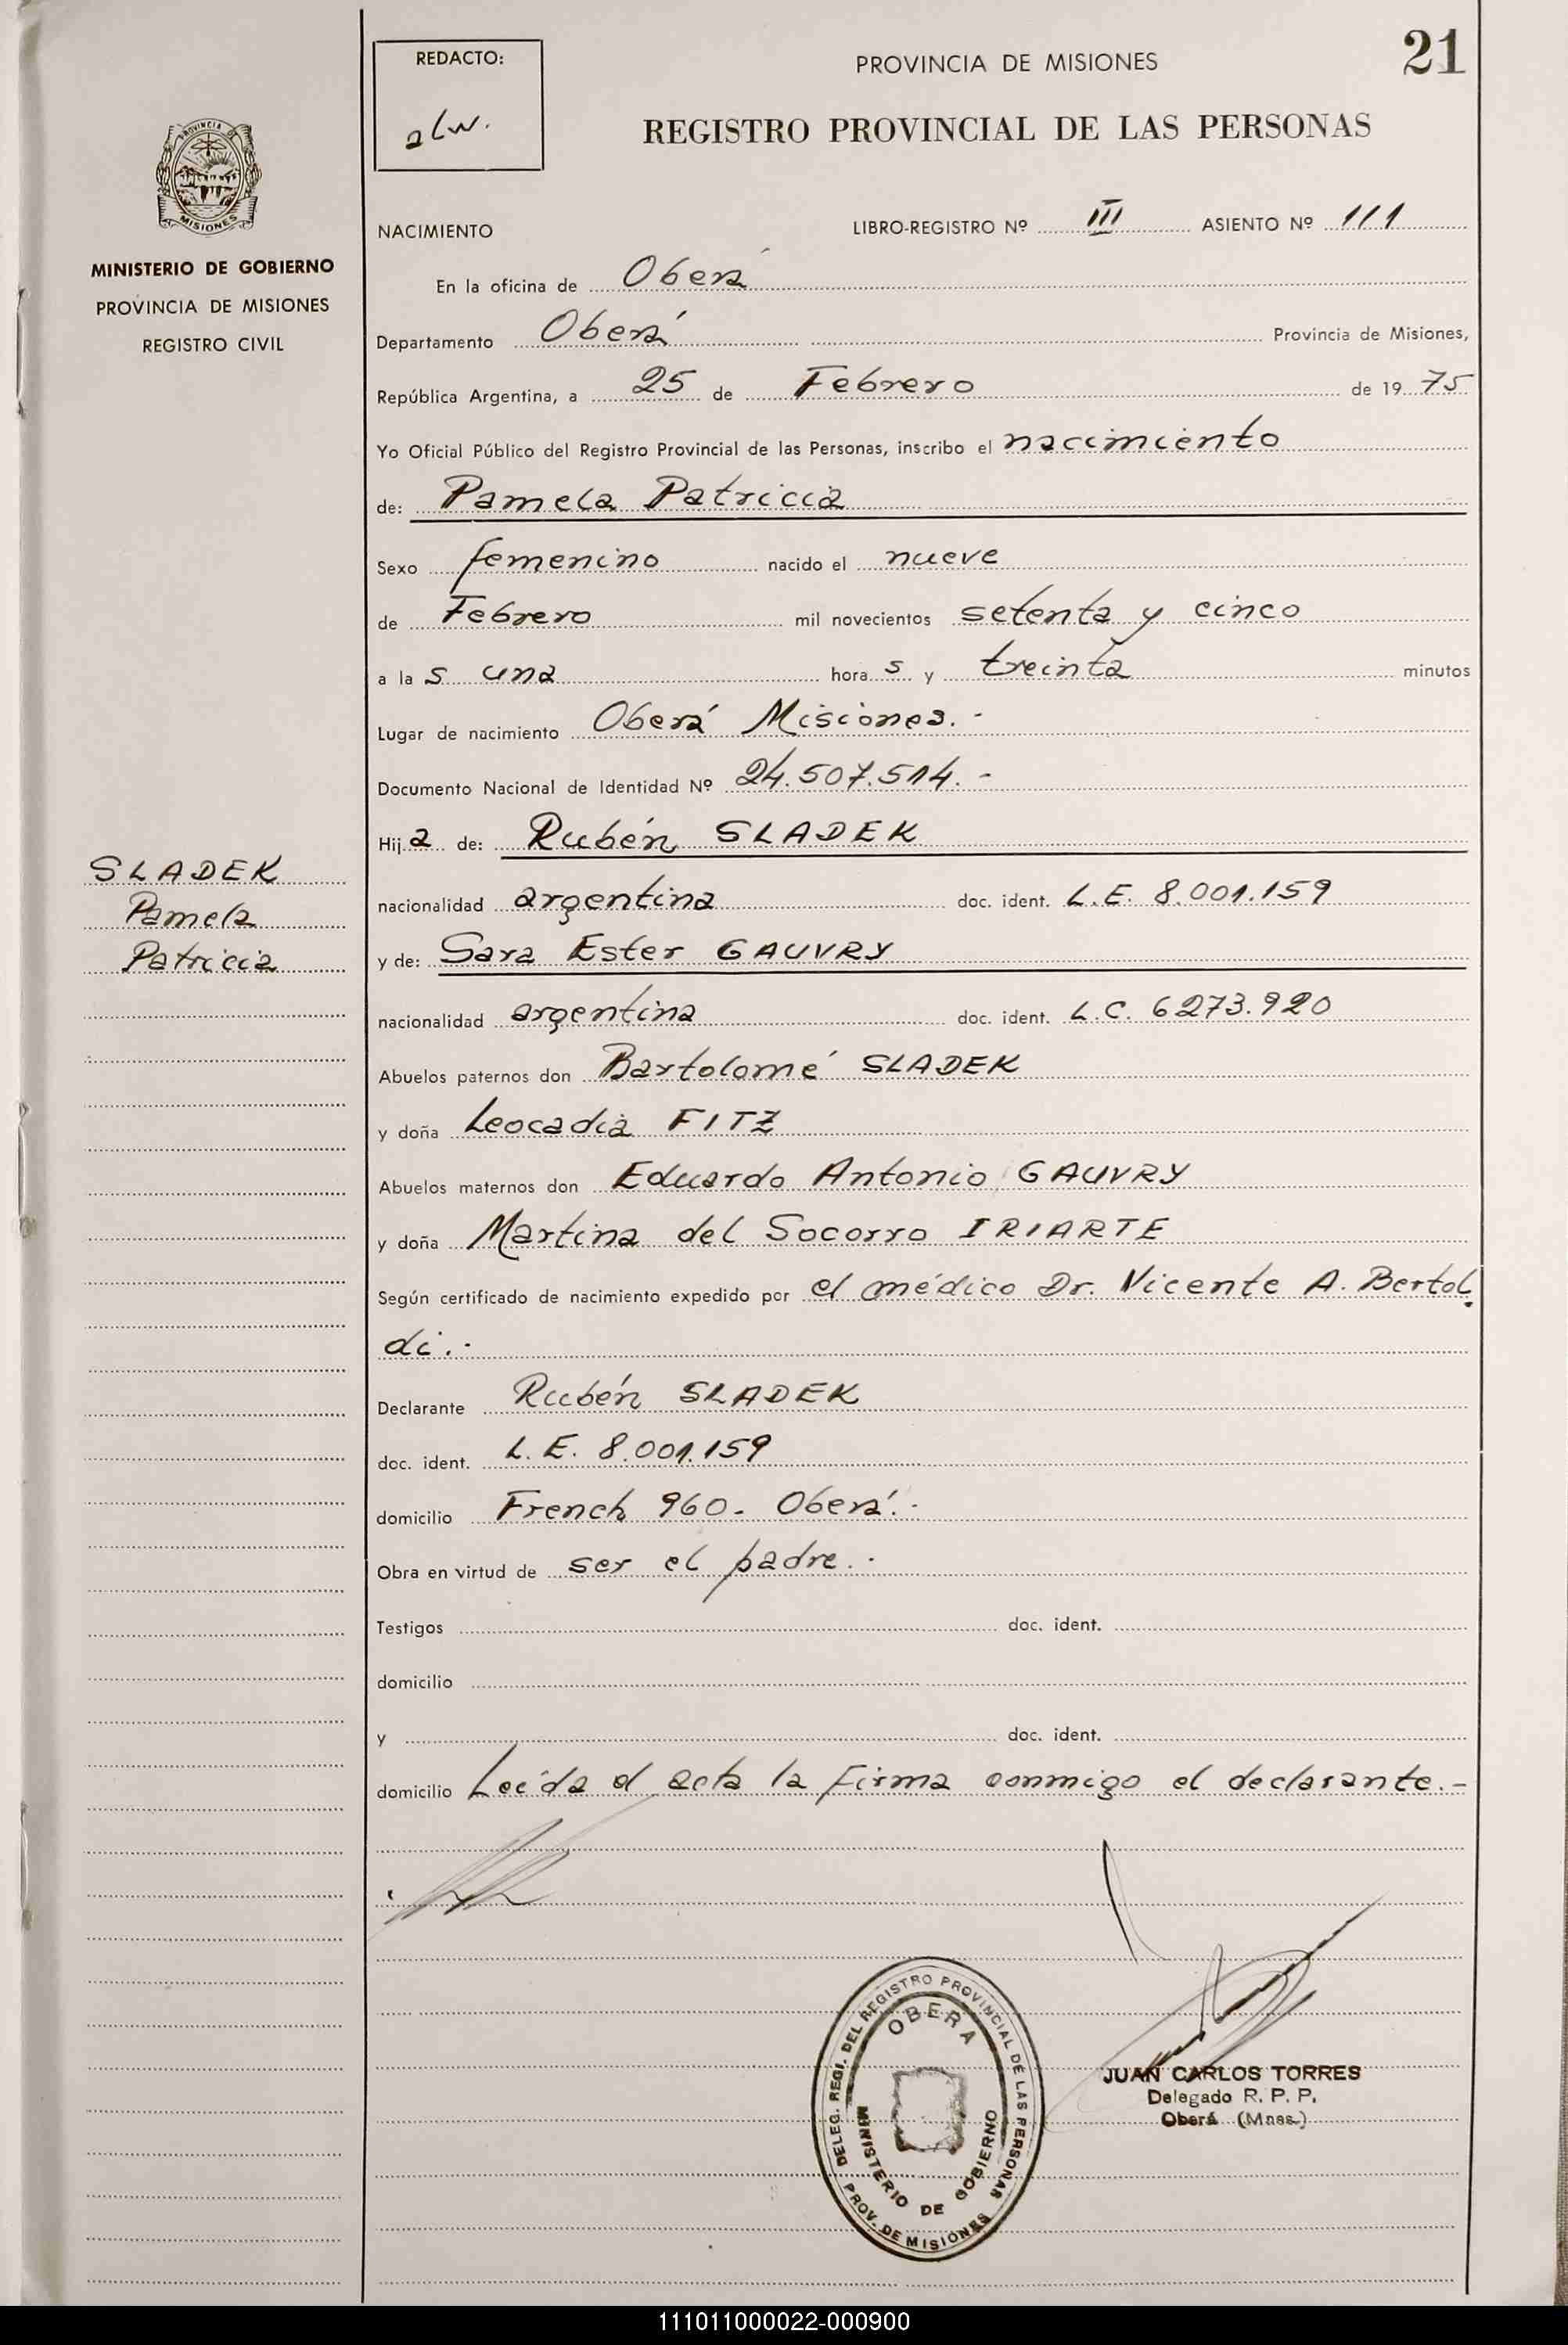 REDACTO:
alw.
PROVINCIA DE MISIONES
21
REGISTRO PROVINCIAL DE LAS PERSONAS
PROVINCIA
MISIONES
MINISTERIO DE GOBIERNO
PROVINCIA DE MISIONES
REGISTRO CIVIL
NACIMIENTO LIBRO-REGISTRO Nº III ASIENTO Nº 111
En la oficina de Oberá
Departamento Oberá Provincia de Misiones,
República Argentina, a 25 de Febrero de 1975
Yo Oficial Público del Registro Provincial de las Personas, inscribo el nacimiento
de: Pamela Patricia
Sexo femenino nacido el nueve
de Febrero mil novecientos setenta y cinco
a la s una hora s y treinta minutos
Lugar de nacimiento Oberá Misiones.-
Documento Nacional de Identidad Nº 24.507.514.-
Hija de: Rubén SLADEK
SLADEK
Pamela
Patricia
nacionalidad argentina doc. ident. L.E. 8.001.159
y de: Sara Ester GAUVRY
nacionalidad argentina doc. ident. L.C. 6273.920
Abuelos paternos don Bartolomé SLADEK
y doña Leocadia FITZ
Abuelos maternos don Eduardo Antonio GAUVRY
y doña Martina del Socorro IRIARTE
Según certificado de nacimiento expedido por el médico Dr. Vicente A. Bertol
di.-
Declarante Rubén SLADEK
doc. ident. L.E. 8.001.159
domicilio French 960- Oberá.-
Obra en virtud de ser el padre.-
Testigos doc. ident.
domicilio
y doc. ident.
domicilio Leída el acta la firma conmigo el declarante.-
DELEG. REGI. DEL REGISTRO PROVINCIAL DE LAS PERSONAS
OBERA
MINISTERIO DE GOBIERNO
PROV. DE MISIONES
JUAN CARLOS TORRES
Delegado R. P. P.
Oberá (Mnes.)
111011000022-000900